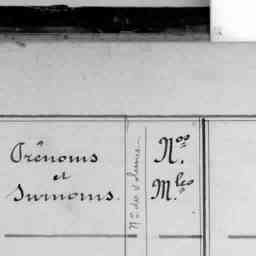 Prénoms
et
Surnoms.
Nos des volumes
Nos.
Mles